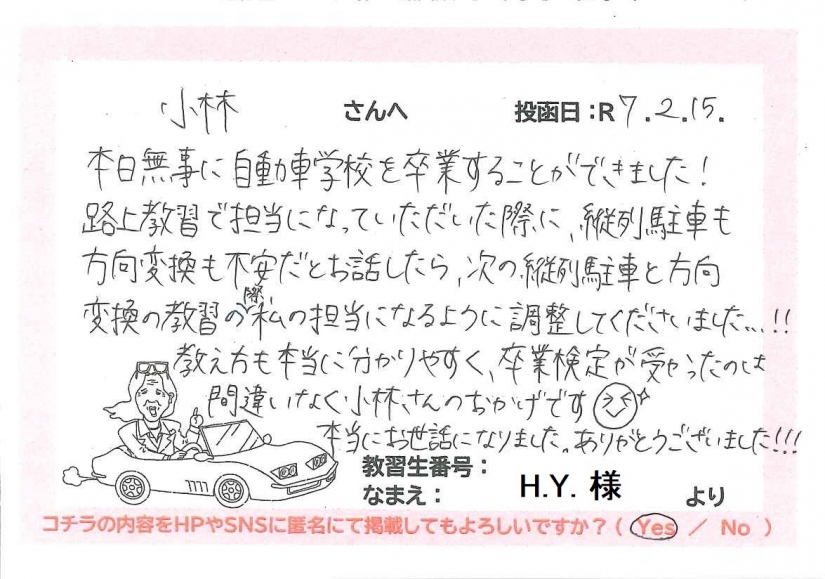 小林 さんへ 投函日:R7.2.15.
本日無事に自動車学校を卒業することができました!
路上教習で担当になっていただいた際に、縦列駐車も
方向変換も不安だとお話したら、次の縦列駐車と方向
変換の教習の際私の担当になるように調整してくださいました...!!
教え方も本当に分かりやすく、卒業検定が受かったのは
間違いなく小林さんのおかげです
本当にお世話になりました。ありがとうございました!!!
教習生番号:
なまえ: H.Y. 様 より
コチラの内容をHPやSNSに匿名にて掲載してもよろしいですか?( Yes / No )